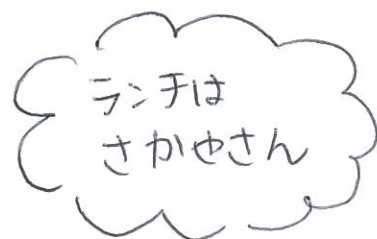 ランチは
さかやさん